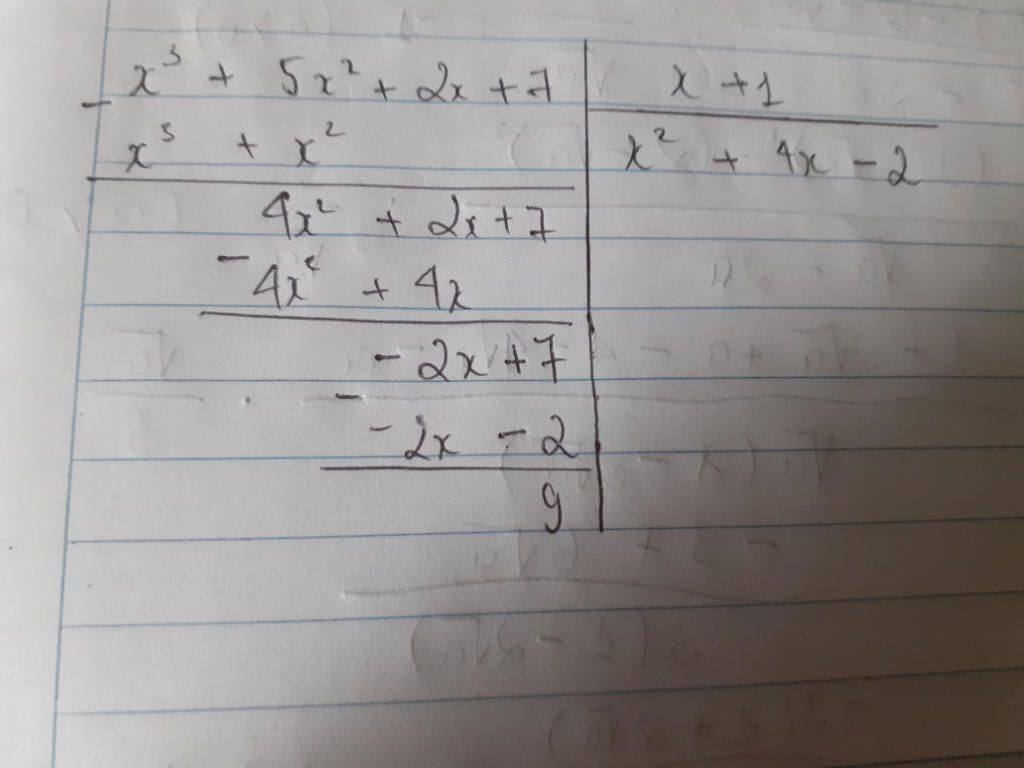 x³ + 5x² + 2x + 7 | x + 1
- x³ + x² | x² + 4x - 2
4x² + 2x + 7
- 4x² + 4x
- 2x + 7
- - 2x - 2
9